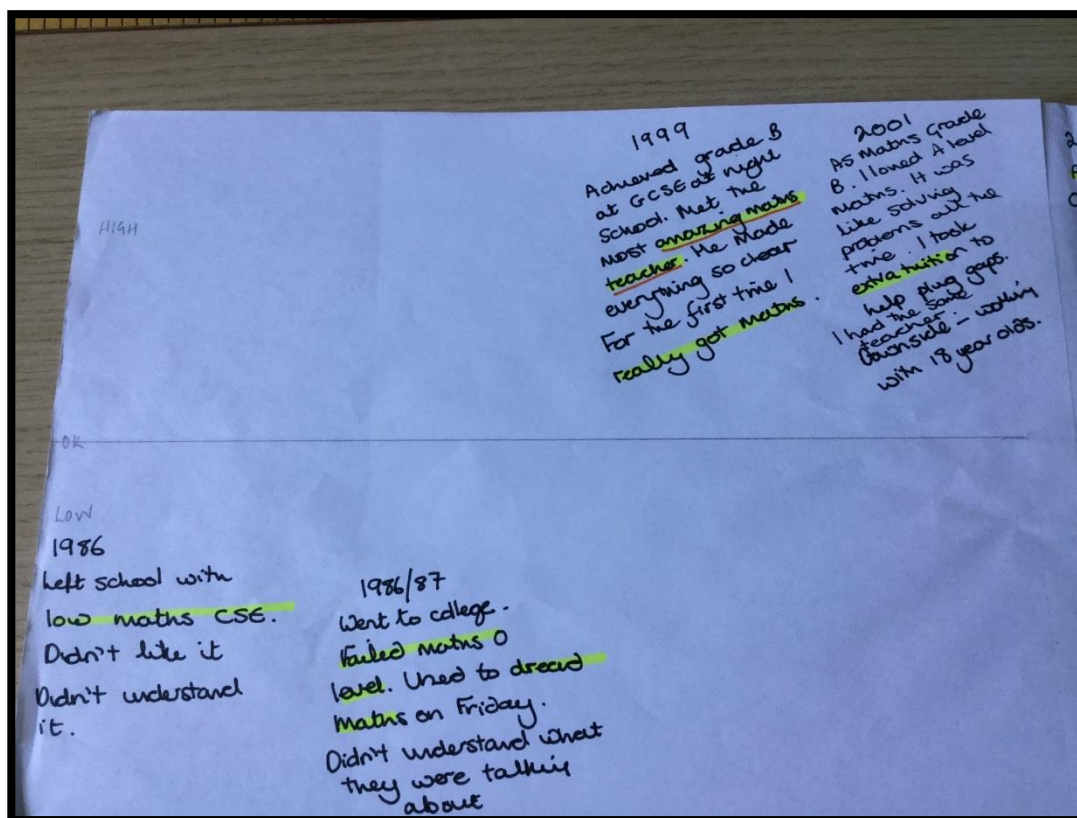 HIGH
OK
LOW
1986
Left school with
low maths CSE.
Didn't like it
Didn't understand
it.
1986/87
Went to college.
Failed maths O
level. Used to dread
maths on Friday.
Didn't understand what
they were talking
about
1999
Achieved grade B
at GCSE at night
school. Met the
most amazing maths
teacher. He made
everything so clear
For the first time I
really got maths.
2001
AS Maths Grade
B. I loved A level
maths. It was
like solving
problems all the
time. I took
extra tuition to
help plug gaps.
I had the same
teacher.
Downside - working
with 18 year olds.